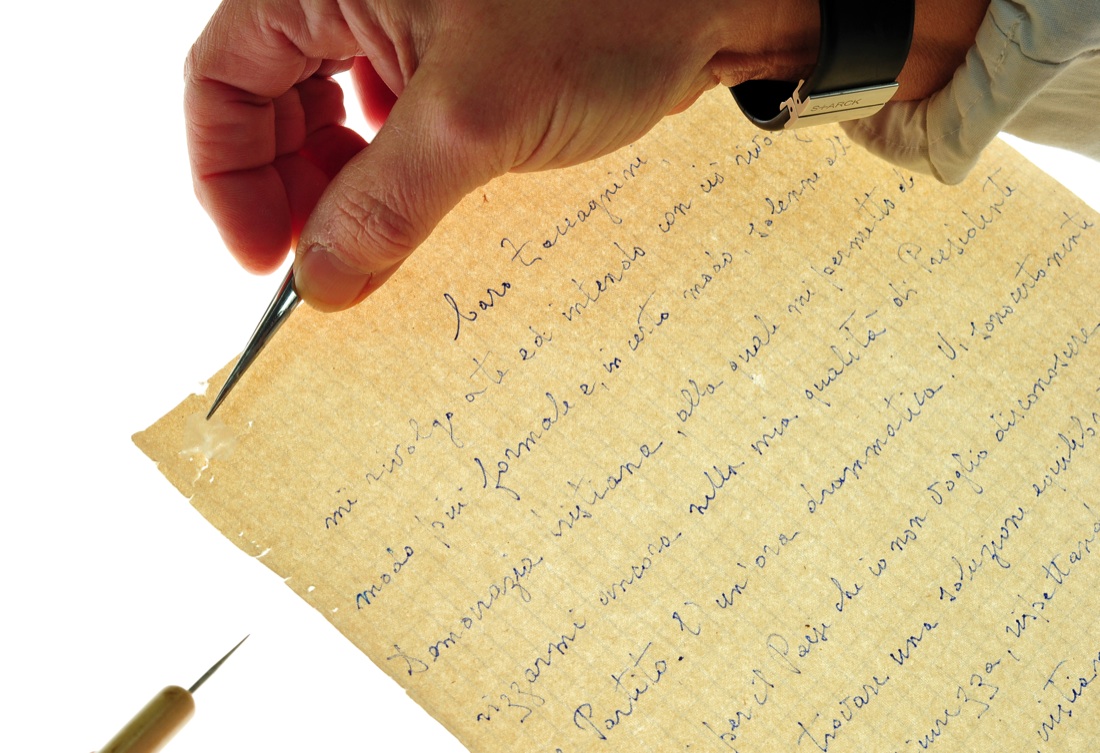 S+ARCK
Caro Zaccagnini,
mi rivolgo a te ed intendo con ciò rivolg
modo più formale e, in certo modo, solenne all
Democrazia Cristiana, alla quale mi permetto di
rizzarmi ancora nella mia qualità di Presidente
Partito. È un'ora drammatica. Vi sono certamente
per il Paese che io non voglio disconoscere
trovare una soluzione equilibr
rezza, rispettand
ristian